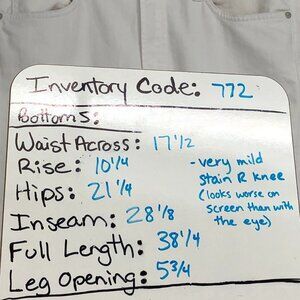 Inventory Code: 772
Bottoms:
Waist Across: 17 1/2
Rise: 10 1/4
Hips: 21 1/4
Inseam: 28 1/8
Full Length: 38 1/4
Leg Opening: 5 3/4
- very mild
stain R knee
(looks worse on
screen than with
the eye)